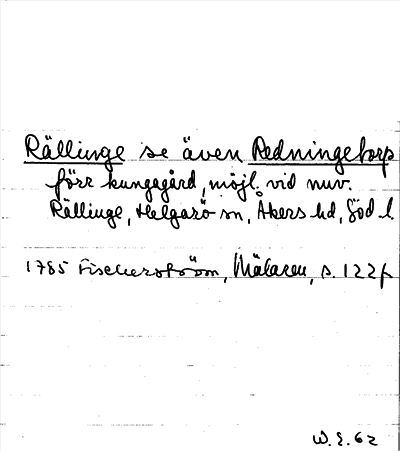 Rällinge se även Redningetorp
förr kungsgård, möjl. vid nuv.
Rällinge, Helgarö sn, Åkers hd, Söd l.
1785 Fischerström, Mälaren, s. 122f
W.E. 62